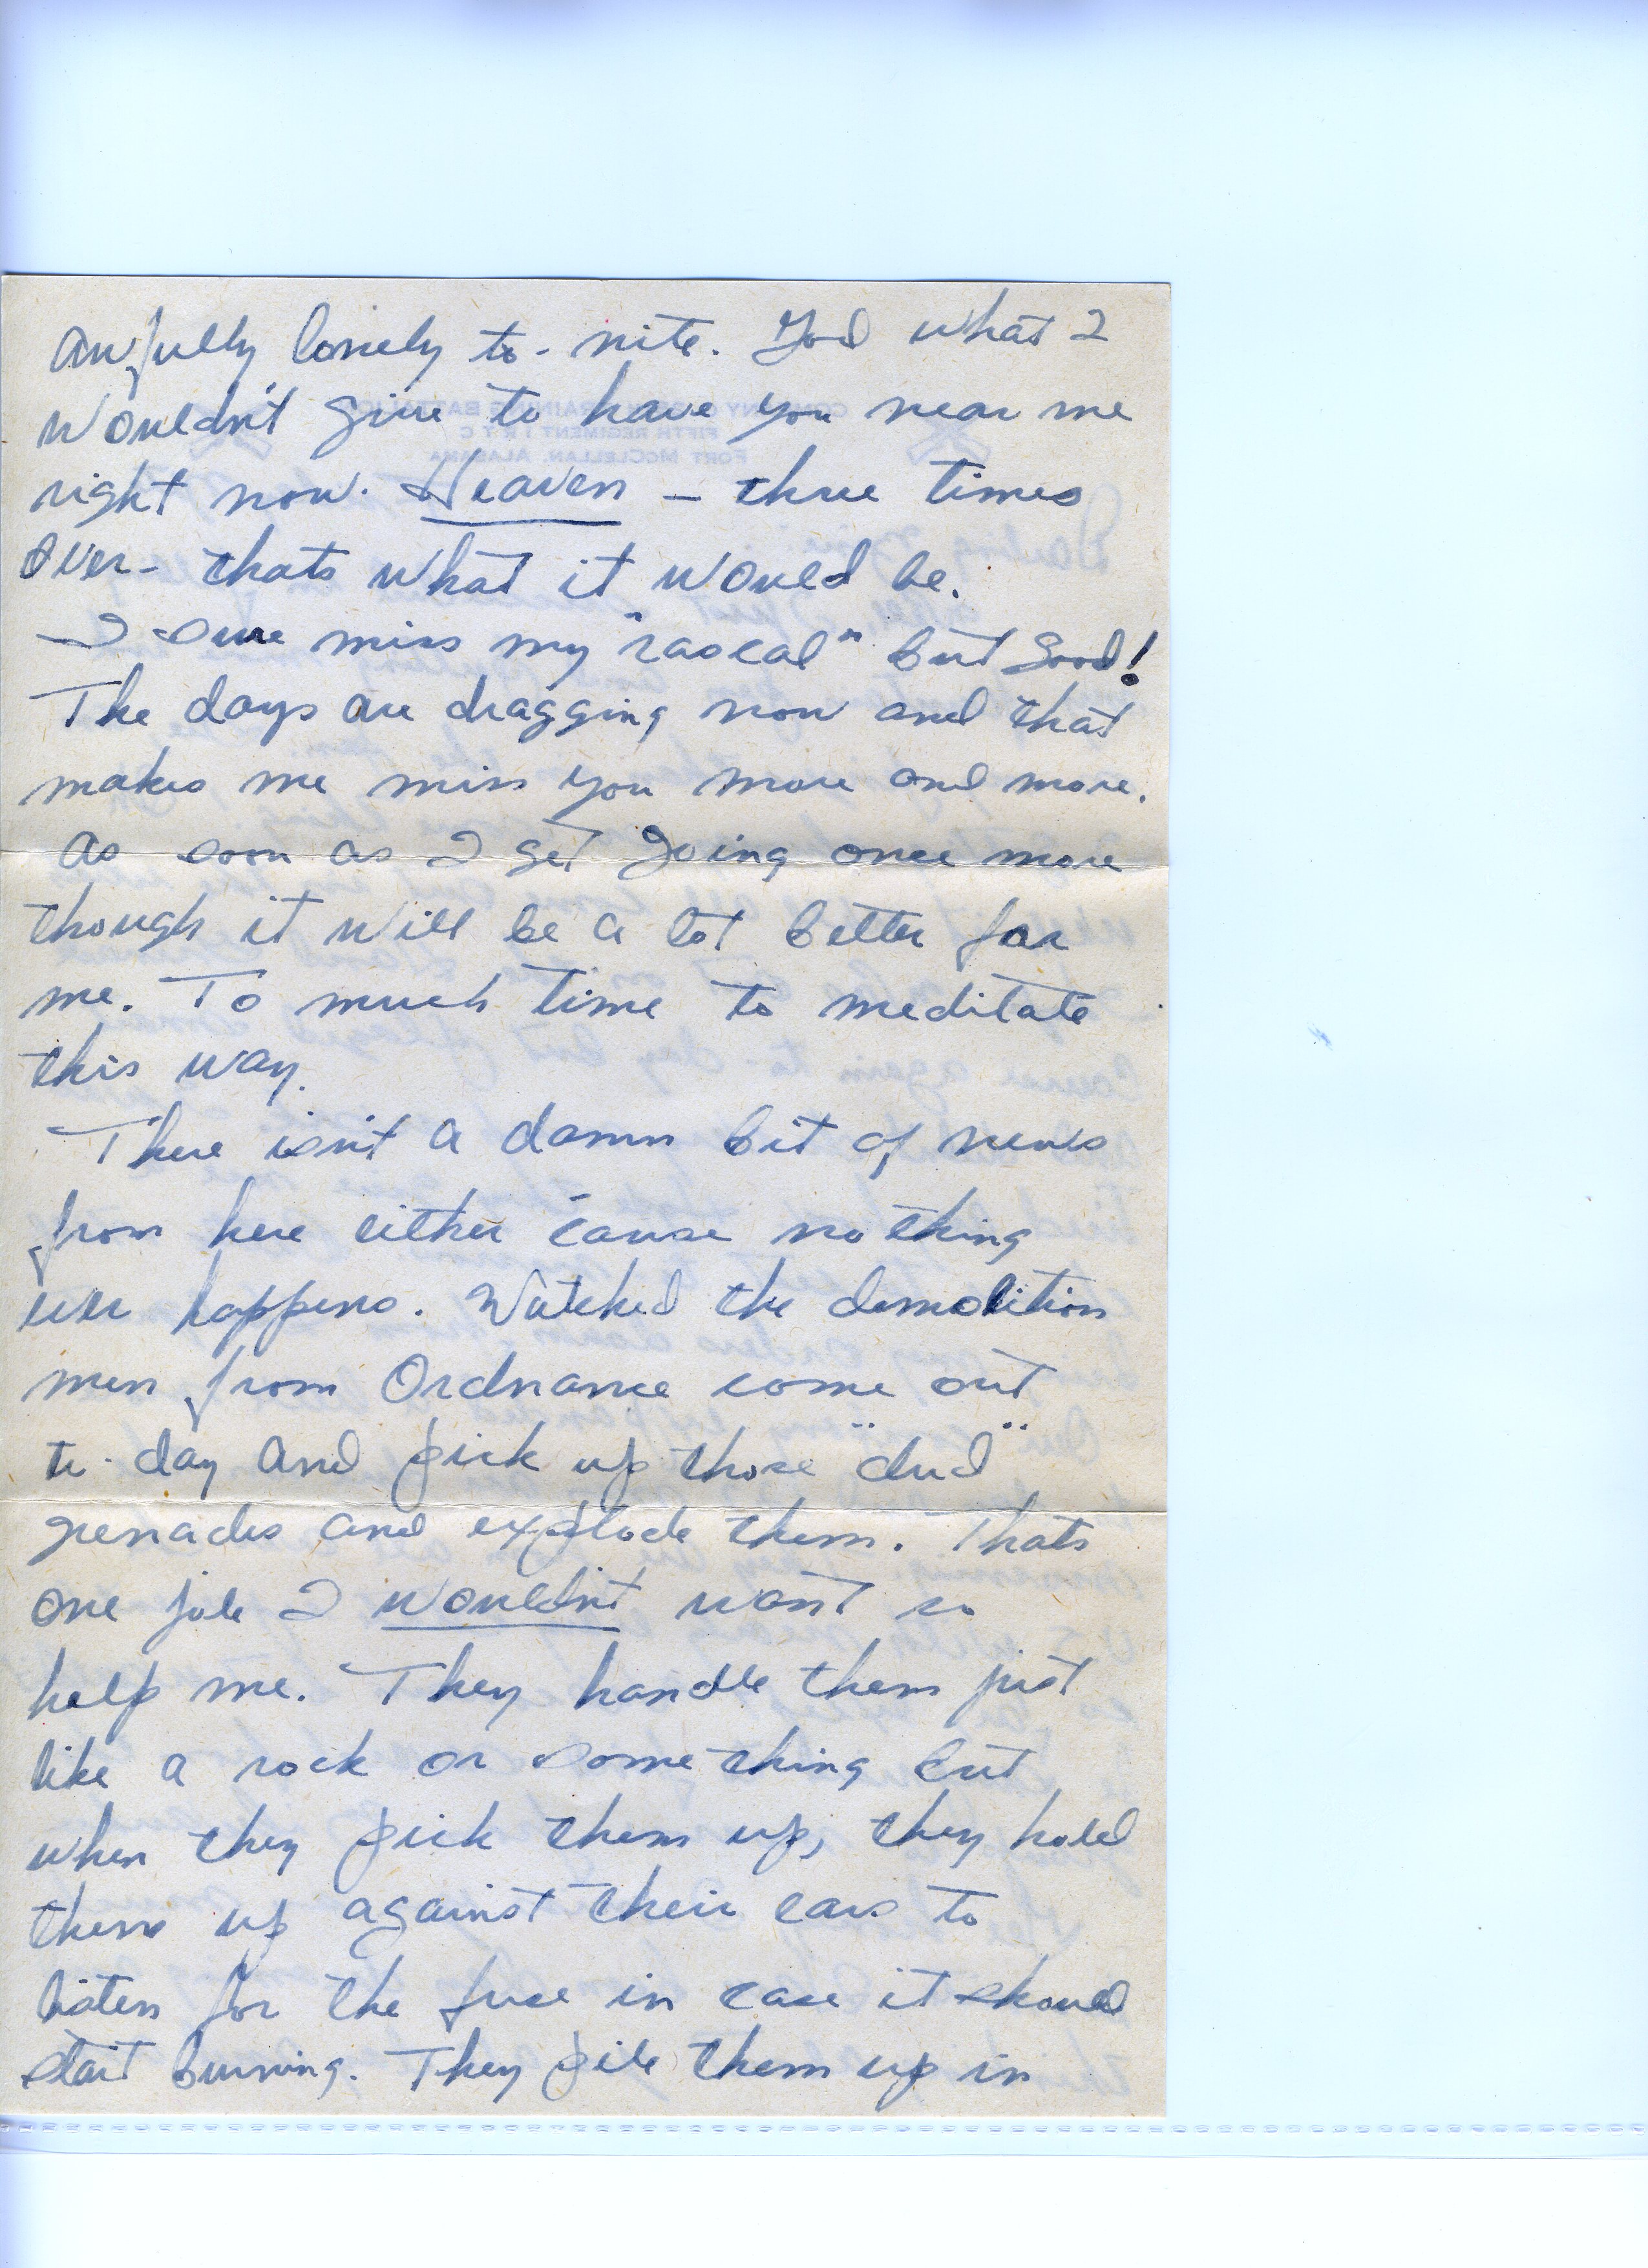 awfully lonely to-nite. God what I
wouldn't give to have you near me
right now. Heaven - three times
over - thats what it would be.
I sure miss my "rascal" but Good!
The days are dragging now and that
makes me miss you more and more.
As soon as I get going once more
though it will be a lot better for
me. To much time to meditate
this way.
There isn't a damn bit of news
from here either 'cause nothing
ever happens. Watched the demolition
men from Ordnance come out
to-day and pick up those "dud"
grenades and explode them. Thats
one job I wouldn't want so
help me. They handle them just
like a rock or something but
when they pick them up, they hold
them up against their ears to
listen for the fuse in case it should
start burning. They pile them up in